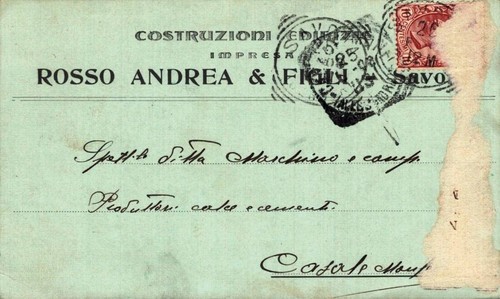 COSTRUZIONI EDILIZIE
IMPRESA
ROSSO ANDREA & FIGLI Savo
Spett.le ditta Marchino e comp.
Produttori calce e cementi
Casale Monf